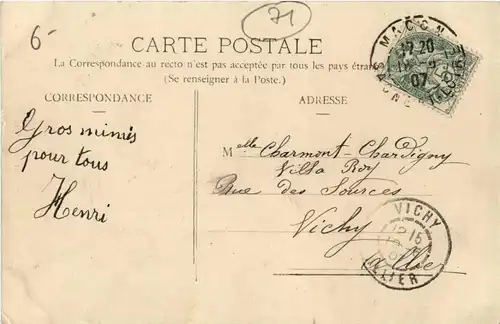 6-
71
CARTE POSTALE
La Correspondance au recto n'est pas acceptée par tous les pays étran
(Se renseigner à la Poste.)
MACON
12 20
07
SAONE-ET-LOIRE
CORRESPONDANCE
ADRESSE
Gros mimis
pour tous
Henri
Melle Charmont-Chardigny
Villa Roy
Rue des Sources
Vichy
Allier
VICHY
12 15
ALLIER